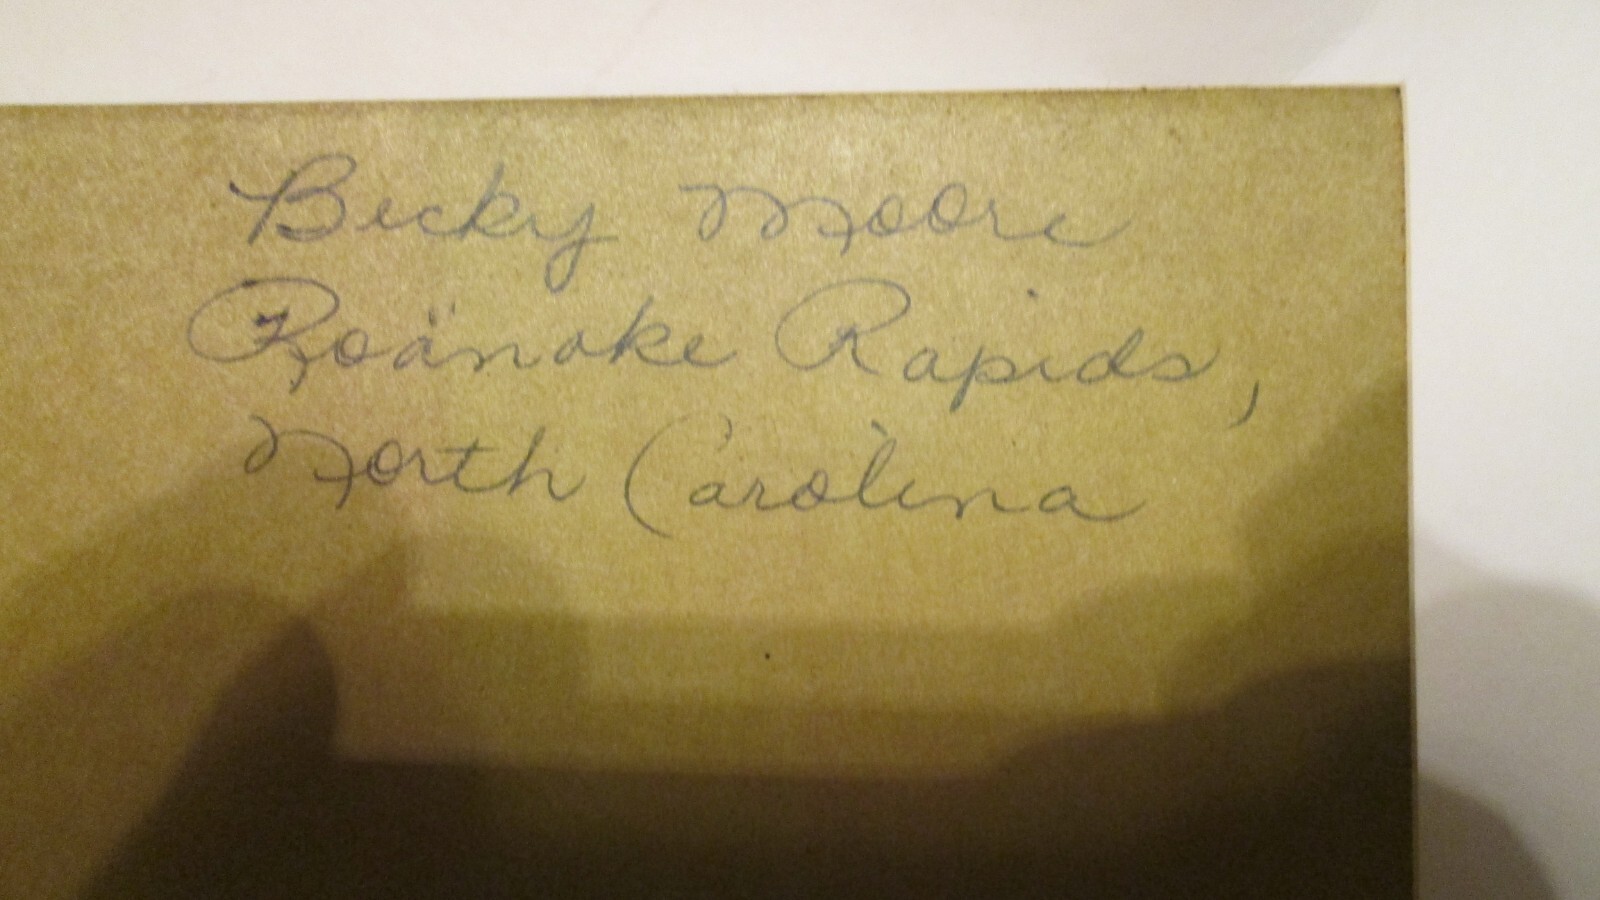 Becky Moore
Roanoke Rapids,
North Carolina